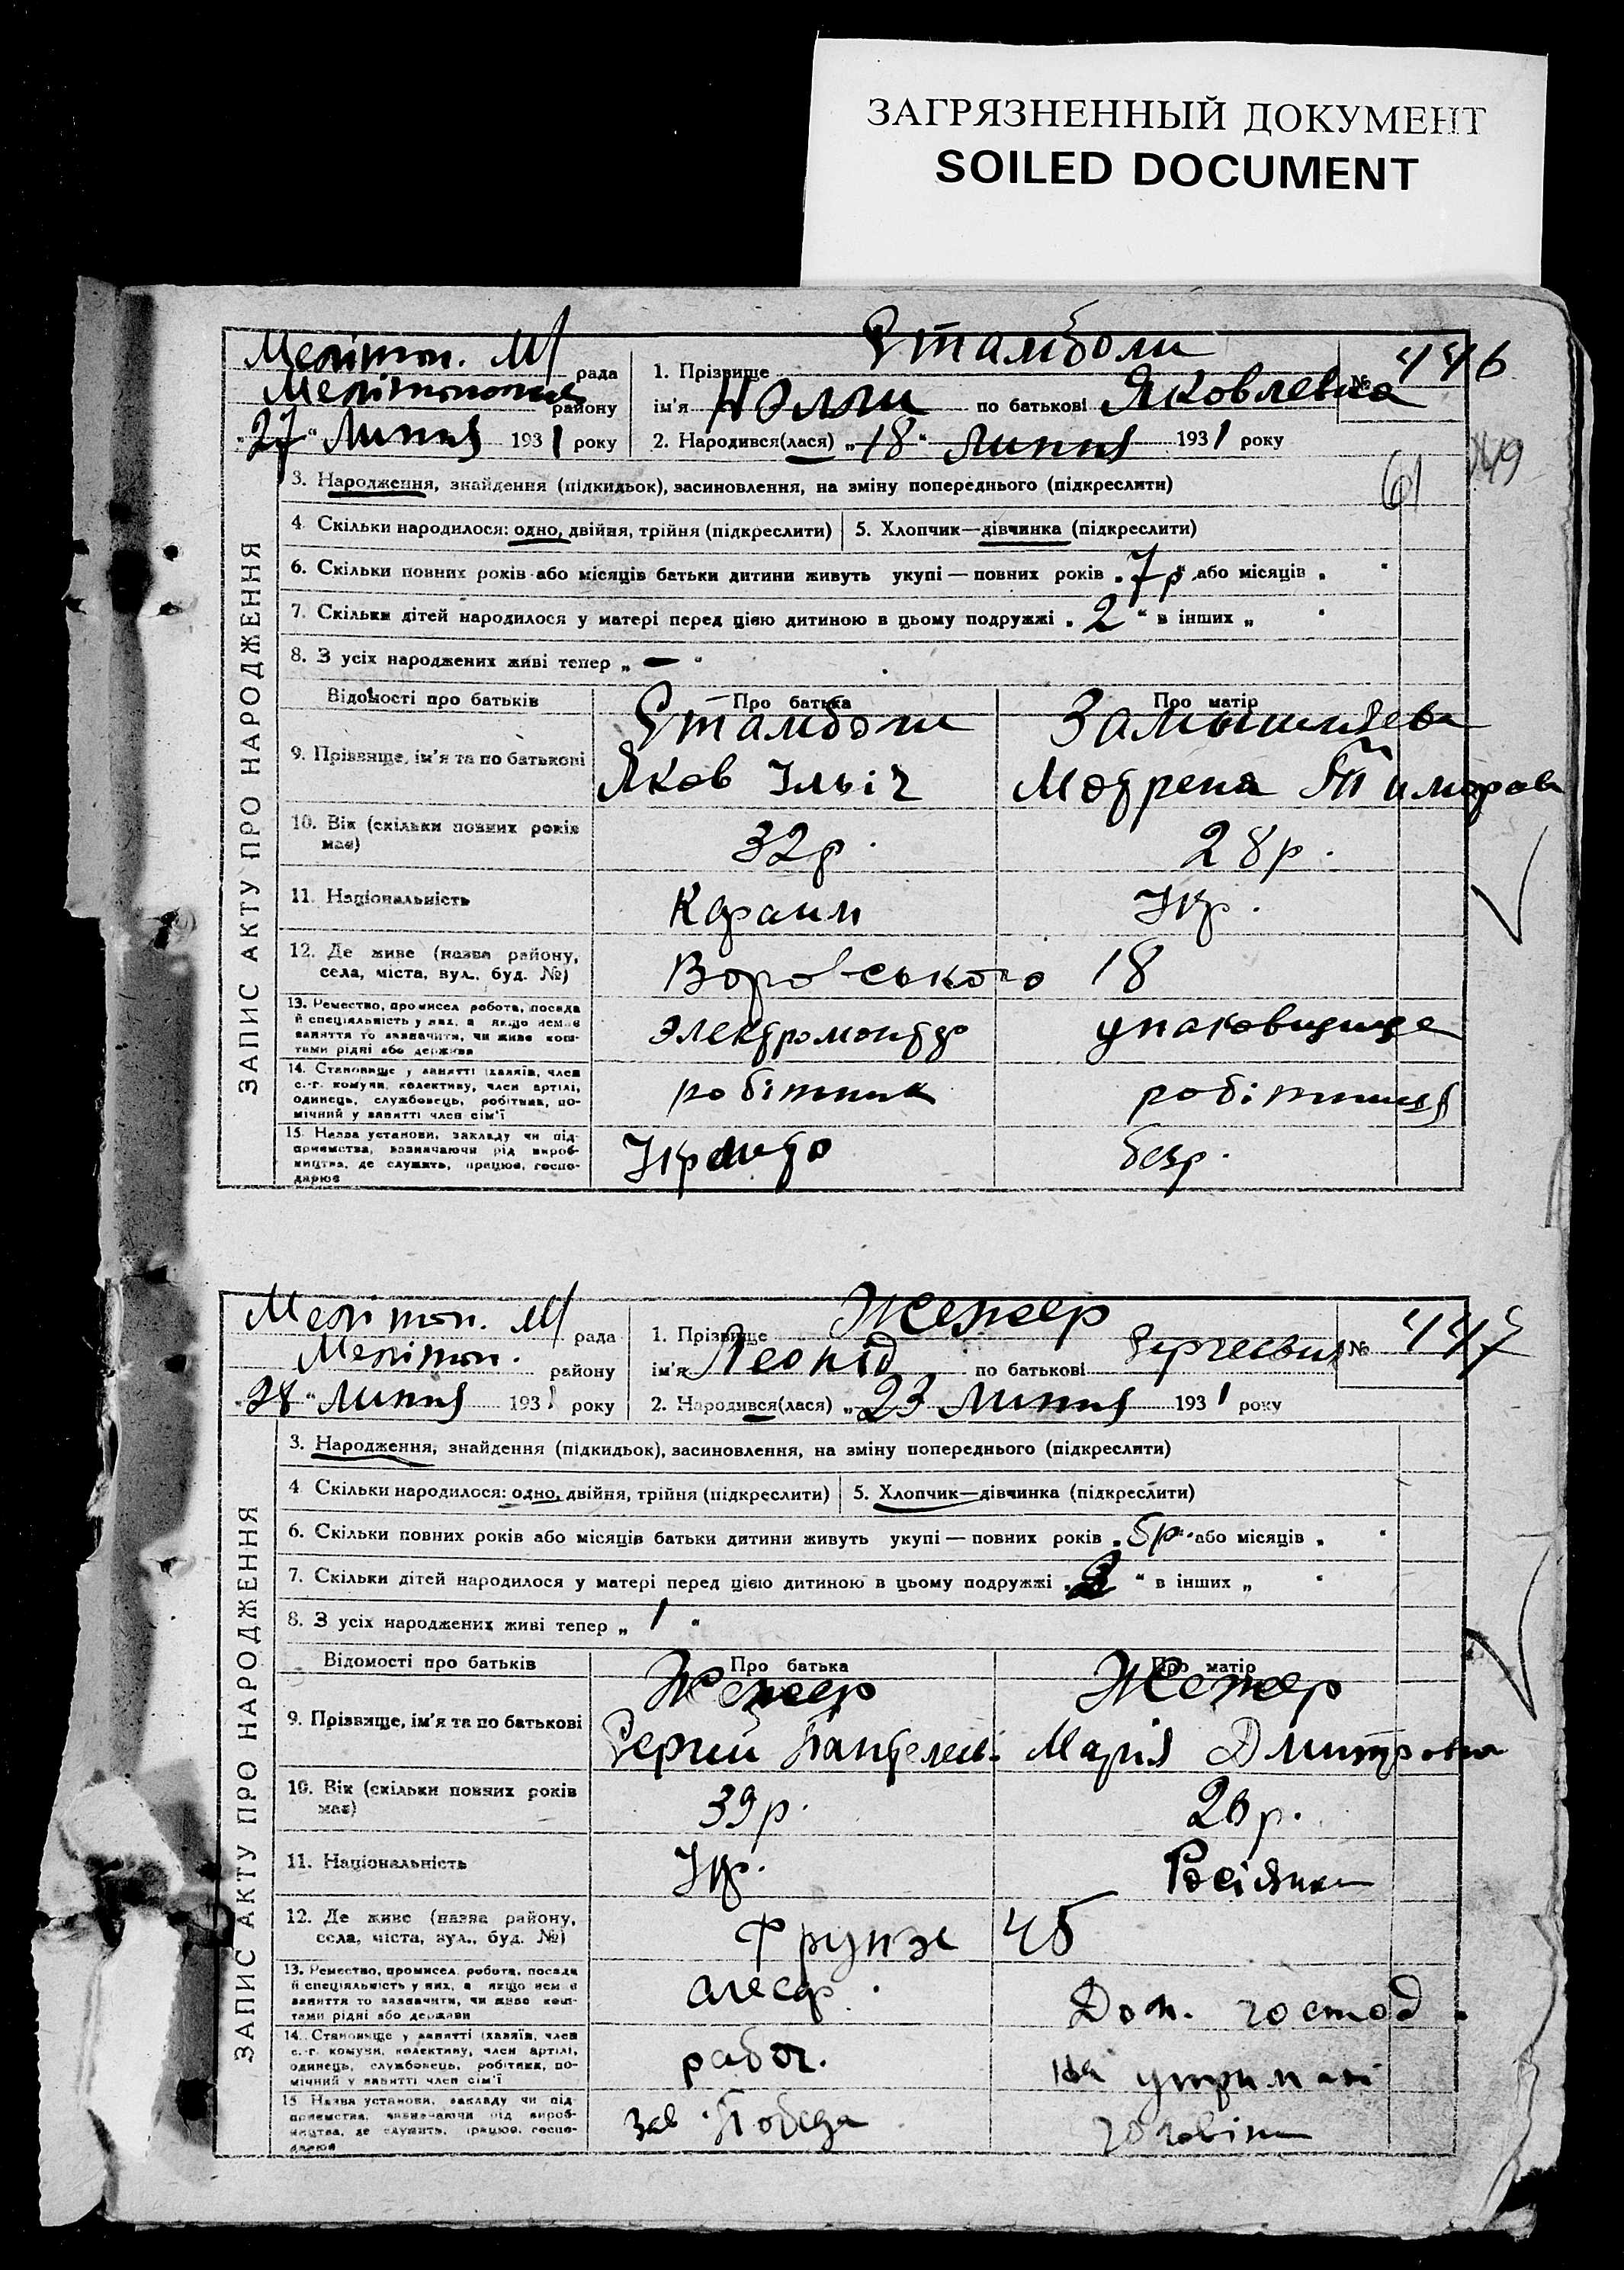 ЗАГРЯЗНЕННЫЙ ДОКУМЕНТ
SOILED DOCUMENT
ЗАПИС АКТУ ПРО НАРОДЖЕННЯ
Мелітоп. М/ рада
Мелітопольс району
"27" Липня 1931 року
1. Прізвище Стамболи
ім'я Нэлли по батькові Яковлевна
№ 446
2. Народився(лася) „18" Липня 1931 року
149
61
3. Народження, знайдення (підкидьок), засиновлення, на зміну попереднього (підкреслити)
4. Скільки народилося: одно, двійня, трійня (підкреслити) 5. Хлопчик—дівчинка (підкреслити)
6. Скільки повних років або місяців батьки дитини живуть укупі — повних років „7р" або місяців „ "
7. Скільки дітей народилося у матері перед цією дитиною в цьому подружжі „2" в інших „ "
8. З усіх народжених живі тепер „—"
Відомості про батьків Про батька Про матір
9. Прізвище, ім'я та по батькові Стамболи Яков Ільіч
Мотрена Тимофров
10. Вік (скільки повних років має) 32р. 28р.
11. Національність Караим Укр.
12. Де живе (назва району, села, міста, вул., буд. №) Воровського 18
13. Ремество, промисел, робота, посада й спеціяльність у них, а якщо немає заняття то зазначити, чи живе коштами рідні або держави
электромонтер
14. Становище у занятті (хазяїн, член с.-г. комуни, колективу, член артілі, одинець, службовець, робітник, помічний у занятті член сім'ї
робітник робітниця
15. Назва установи, закладу чи підприємства, зазначаючи рід виробництва, де служить, працює, господарює
безр.
ЗАПИС АКТУ ПРО НАРОДЖЕННЯ
Мелітоп. М/ рада
Мелітоп. району
"28" Липня 1931 року
1. Прізвище Женжер
ім'я Леонід по батькові Сергеевич
№ 447
2. Народився(лася) „23 Липня 1931 року
3. Народження, знайдення (підкидьок), засиновлення, на зміну попереднього (підкреслити)
4 Скільки народилося: одно, двійня, трійня (підкреслити) 5. Хлопчик—дівчинка (підкреслити)
6. Скільки повних років або місяців батьки дитини живуть укупі — повних років „5р" або місяців „ "
7. Скільки дітей народилося у матері перед цією дитиною в цьому подружжі „2" в інших „ "
8. З усіх народжених живі тепер „1"
Відомості про батьків Про батька Про матір
9. Прізвище, ім'я та по батькові Женжер Женжер
Сергий Пантелеев. Марія Дмитровна
10. Вік (скільки повних років має) 39р. 26р.
11. Національність Укр. Росіянка
12. Де живе (назва району, села, міста, вул., буд. №) Фрунзе 45
13. Ремество, промисел, робота, посада й спеціяльність у них, а якщо немає заняття то зазначити, чи живе коштами рідні або держави
слесар. Дом. господ.
14. Становище у занятті (хазяїн, член с.-г. комуни, колективу, член артілі, одинець, службовець, робітник, помічний у занятті член сім'ї
рабоч. на утримані
15. Назва установи, закладу чи підприємства, зазначаючи рід виробництва, де служить, працює, господарює
зав. Победа чоловіка